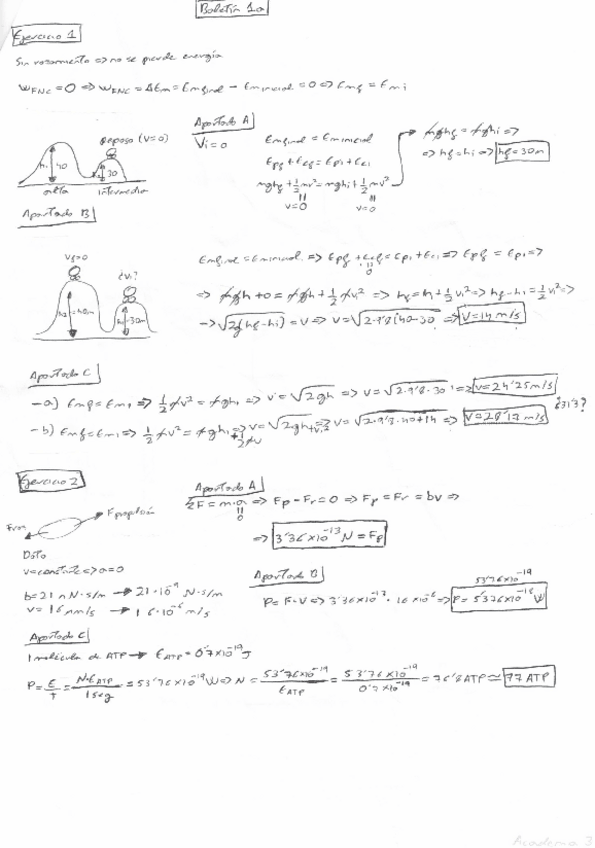 Boletín 1a
Ejercicio 1
Sin rozamiento => no se pierde energía
W_FNC = 0 => W_FNC = ΔEm = Em final - Em inicial = 0 => Emf = Emi
Apartado A
reposo (v=0)
Vi = 0
40
30
alta intermedia
Em final = Em inicial
Epf + Ecf = Epi + Eci
mghf + 1/2 mv² = mghi + 1/2 mv²
v=0 v=0
mghf = mghi =>
=> hf = hi => hf = 30m
Apartado B
Vf=0
¿vi?
=40m
=30m
Em final = Em inicial => Epf + Ecf = Epi + Eci => Epf = Epi =>
0
=> mgh + 0 = mgh + 1/2 mvi² => hf = h + 1/2 vi² => hf - hi = 1/2 vi² =>
-> √2g(hf-hi) = v => v = √2·9'8(40-30 => V = 14 m/s
Apartado C
-a) Emf = Emi => 1/2 mv² = mghi => v = √2gh => v = √2·9'8·30 => v = 24'25 m/s
-b) Emf = Emi => 1/2 mv² = mghi + 1/2 mv => v = √2gh + vi² => v = √2·9'8·40+14 => V = 28'17 m/s ¿31'3?
Ejercicio 2
Apartado A
F propulsión
Froz
ΣF = m·a => Fp - Fr = 0 => Fp = Fr = bv =>
0
=> 3'36x10⁻¹³ N = Fp
Dato
v = constante => a = 0
b = 21 nN·s/m -> 21·10⁻⁹ N·s/m
v = 16 µm/s -> 16·10⁻⁶ m/s
Apartado B
53'76x10⁻¹⁹
P = F·V => 3'36x10⁻¹³ · 16x10⁻⁶ => P = 5'376x10⁻¹⁸ W
Apartado C
1 molécula de ATP -> E_ATP = 0'7x10⁻¹⁹ J
P = E/T = N·E_ATP/1seg = 53'76x10⁻¹⁹ W => N = 53'76x10⁻¹⁹/E_ATP = 53'76x10⁻¹⁹/0'7x10⁻¹⁹ = 76'8 ATP ≃ 77 ATP
Academa 3